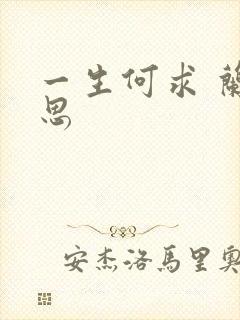 一生何求
思
安杰洛馬里奧